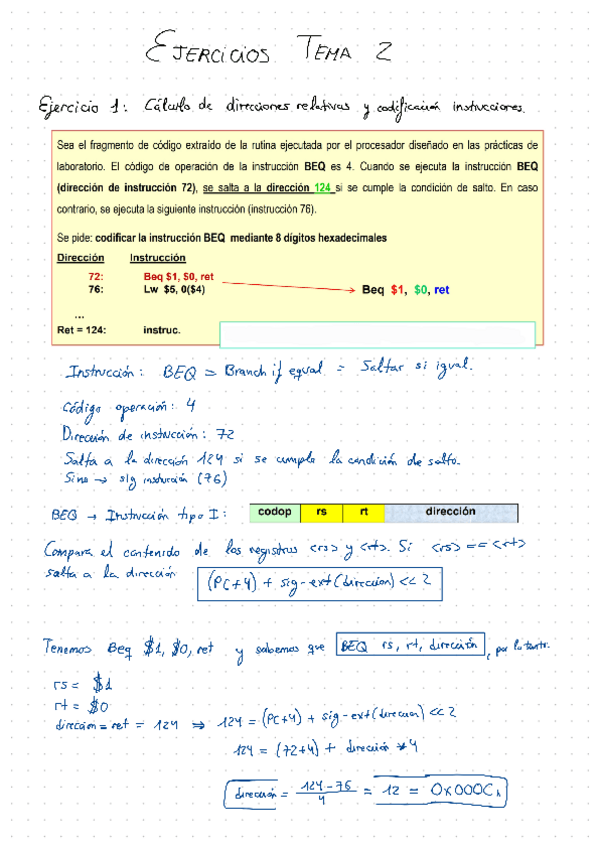 EJERCICIOS TEMA 2
Ejercicio 1: Cálculo de direcciones relativas y codificación instrucciones.
Sea el fragmento de código extraído de la rutina ejecutada por el procesador diseñado en las prácticas de
laboratorio. El código de operación de la instrucción BEQ es 4. Cuando se ejecuta la instrucción BEQ
(dirección de instrucción 72), se salta a la dirección 124 si se cumple la condición de salto. En caso
contrario, se ejecuta la siguiente instrucción (instrucción 76).
Se pide: codificar la instrucción BEQ mediante 8 dígitos hexadecimales
Dirección Instrucción
72: Beq $1, $0, ret
76: Lw $5, 0($4) Beq $1, $0, ret
...
Ret = 124: instruc.
Instrucción: BEQ = Branch if equal = Saltar si igual.
Código operación: 4
Dirección de instrucción: 72
Salta a la dirección 124 si se cumple la condición de salto.
Sino → sig instrucción (76)
BEQ → Instrucción tipo I: codop rs rt dirección
Compara el contenido de los registros <rs> y <rt>. Si <rs> == <rt>
salta a la dirección (PC+4) + sig-ext(dirección) << 2
Tenemos Beq $1, $0, ret y sabemos que BEQ rs, rt, dirección, por lo tanto.
rs = $1
rt = $0
dirección = ret = 124 ⇒ 124 = (PC+4) + sig-ext(dirección) << 2
124 = (72+4) + dirección * 4
dirección = 124-76 / 4 = 12 = 0x000Ch